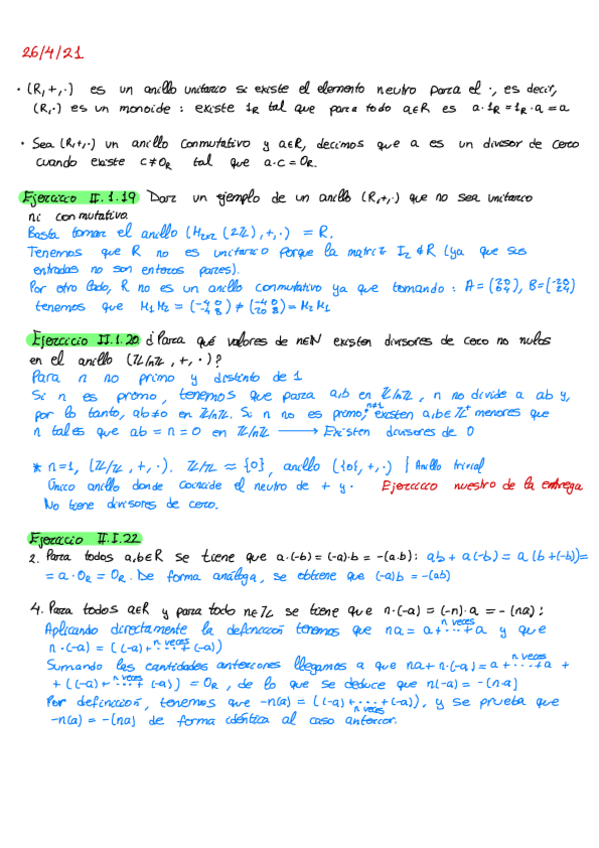 26/4/21
· (R,+,·) es un anillo unitario si existe el elemento neutro para el ·, es decir,
(R,·) es un monoide : existe 1_R tal que para todo a∈R es a·1_R = 1_R·a = a
· Sea (R,+,·) un anillo conmutativo y a∈R, decimos que a es un divisor de cero
cuando existe c≠0_R tal que a·c = 0_R.
Ejercicio II.1.19 Dar un ejemplo de un anillo (R,+,·) que no sea unitario
ni conmutativo.
Basta tomar el anillo (M_{2x2}(2ℤ),+,·) = R.
Tenemos que R no es unitario porque la matriz I_2 ∉ R (ya que sus
entradas no son enteros pares).
Por otro lado, R no es un anillo conmutativo ya que tomando : A = B=
tenemos que M_1M_2 = ≠ = M_2M_1
Ejercicio II.1.20 ¿Para qué valores de n∈ℕ existen divisores de cero no nulos
en el anillo (ℤ/nℤ, +, ·)?
Para n no primo y distinto de 1
Si n es primo, tenemos que para a,b ∈ ℤ/nℤ, n no divide a ab y,
por lo tanto, ab≠0 en ℤ/nℤ. Si n no es primo, n≠1 existen a,b∈ℤ⁺ menores que
n tales que ab = n = 0 en ℤ/nℤ ⟶ Existen divisores de 0
* n=1, (ℤ/ℤ, +, ·). ℤ/ℤ ≈ {0}, anillo ({0},+,·) } Anillo trivial
Único anillo donde coincide el neutro de + y · Ejercicio nuestro de la entrega
No tiene divisores de cero.
Ejercicio II.I.22
2. Para todos a,b∈R se tiene que a·(-b) = (-a)·b = -(a·b) : ab + a(-b) = a(b+(-b))=
= a·0_R = 0_R. De forma análoga, se obtiene que (-a)b = -(ab)
4. Para todos a∈R y para todo n∈ℤ se tiene que n·(-a) = (-n)·a = -(na) :
Aplicando directamente la definición tenemos que na = a + n veces ··· + a y que
n·(-a) = ((-a) + n veces ··· + (-a))
Sumando las cantidades anteriores llegamos a que na + n·(-a) = a + n veces ··· + a +
+ ((-a) + n veces ··· + (-a)) = 0_R, de lo que se deduce que n(-a) = -(n·a)
Por definición, tenemos que -n(a) = ((-a) + ··· n veces + (-a)), y se prueba que
-n(a) = -(na) de forma idéntica al caso anterior.